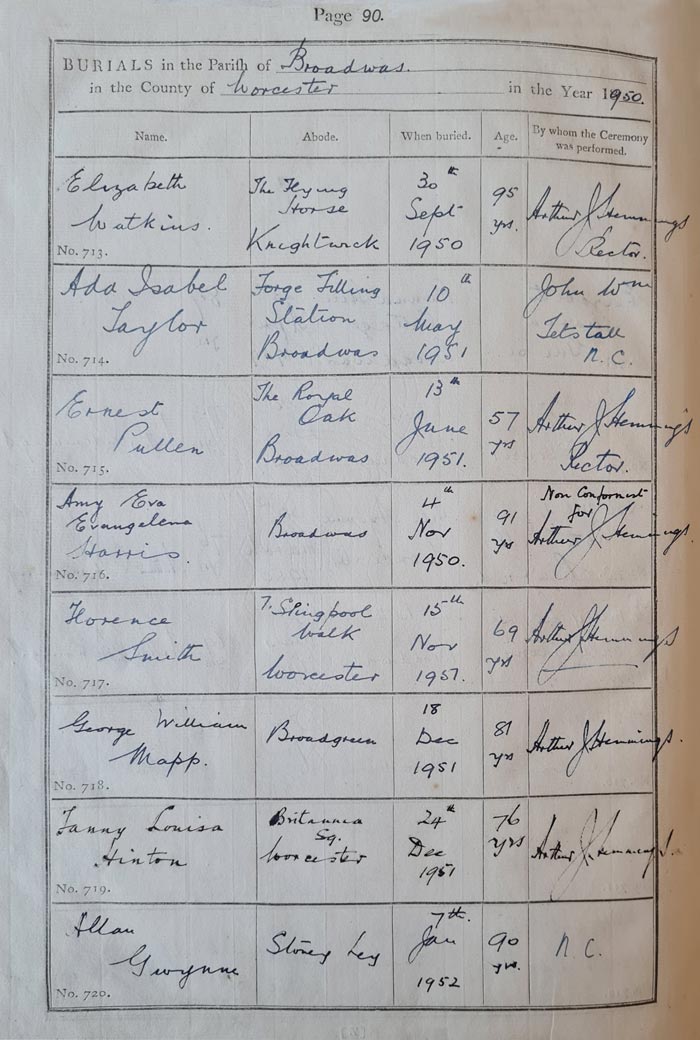 Page 90.
BURIALS in the Parish of Broadwas.
in the County of Worcester in the Year 1950.
Name. Abode. When buried. Age. By whom the Ceremony was performed.
Elizabeth
Watkins.
No. 713.
The Flying
Horse
Knightwick
30th
Sept
1950
95
yrs.
Arthur J Hemmings
Rector.
Ada Isabel
Taylor
No. 714.
Forge Filling
Station
Broadwas
10th
May
1951
John Wm
Tetstall
N.C.
Ernest
Pullen
No. 715.
The Royal
Oak
Broadwas
13th
June
1951.
57
yrs
Arthur J Hemmings
Rector.
Amy Eva
Evangelena
Harris.
No. 716.
Broadwas
4th
Nov
1950.
91
yrs
Non Conformist
for
Arthur J Hemmings.
Florence
Smith
No. 717.
7. Slingpool
Walk
Worcester
15th
Nov
1951.
69
yrs
Arthur J Hemmings
George William
Mapp.
No. 718.
Broadgreen
18
Dec
1951
81
yrs
Arthur J Hemmings.
Fanny Louisa
Hinton
No. 719.
Britannia
Sq.
Worcester
24th
Dec
1951
76
yrs
Arthur J Hemmings.
Allan
Gwynne
No. 720.
Stoney Ley
7th.
Jan
1952
90
yrs.
N.C.